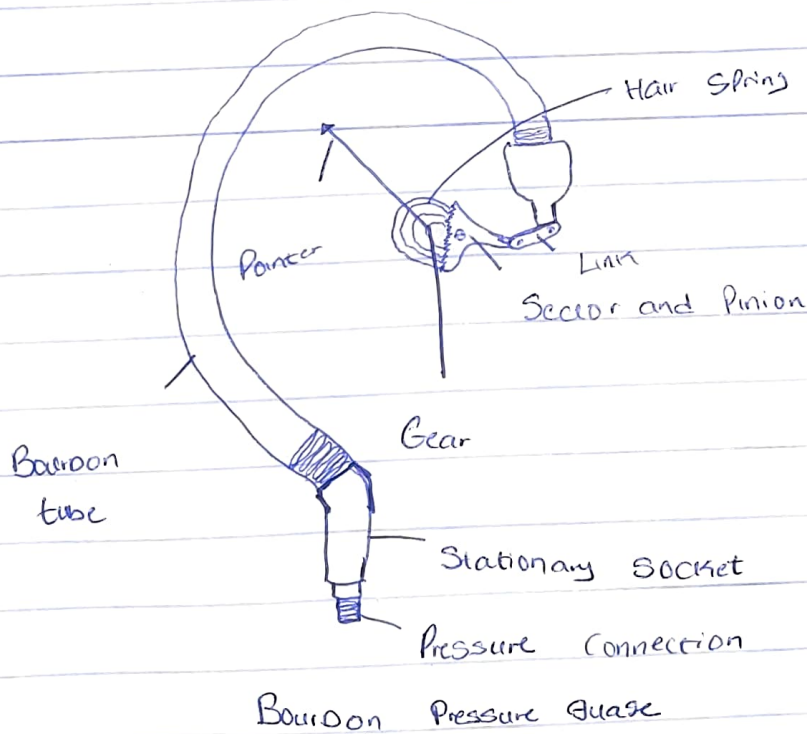 Hair Spring
Pointer
Link
Sector and Pinion
Gear
Bourdon
tube
Stationary Socket
Pressure Connection
Bourdon Pressure Guage